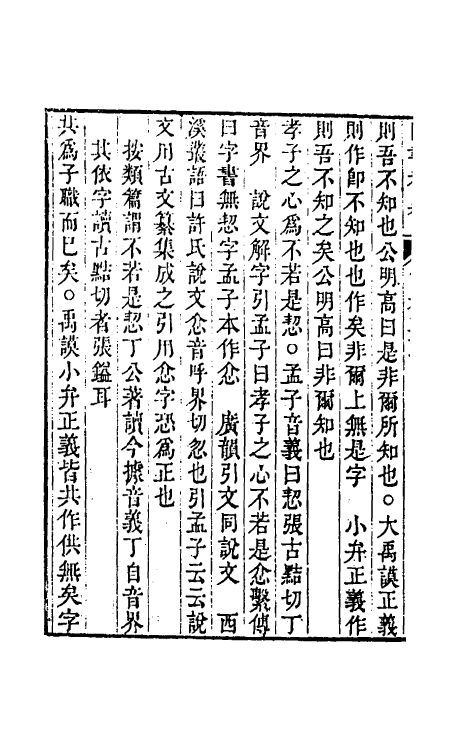 則吾不知也公明高曰是非爾所知也○大禹謨正義
則作卽不知也也作矣非爾上無是字　小弁正義作
則吾不知之矣公明高曰非爾知也
孝子之心爲不若是恝○孟子音義曰恝張古黠切丁
音界　說文解字引孟子曰孝子之心不若是忿繫傳
曰字書無恝字孟子本作忿　廣韻引文同說文　西
溪叢語曰許氏說文忿音呼界切忽也引孟子云云說
文用古文纂集成之引用忿字恐爲正也
按類篇謂不若是恝丁公著讀今據音義丁自音界
其依字讀古黠切者張鎰耳
共爲子職而已矣○禹謨小弁正義皆共作供無矣字